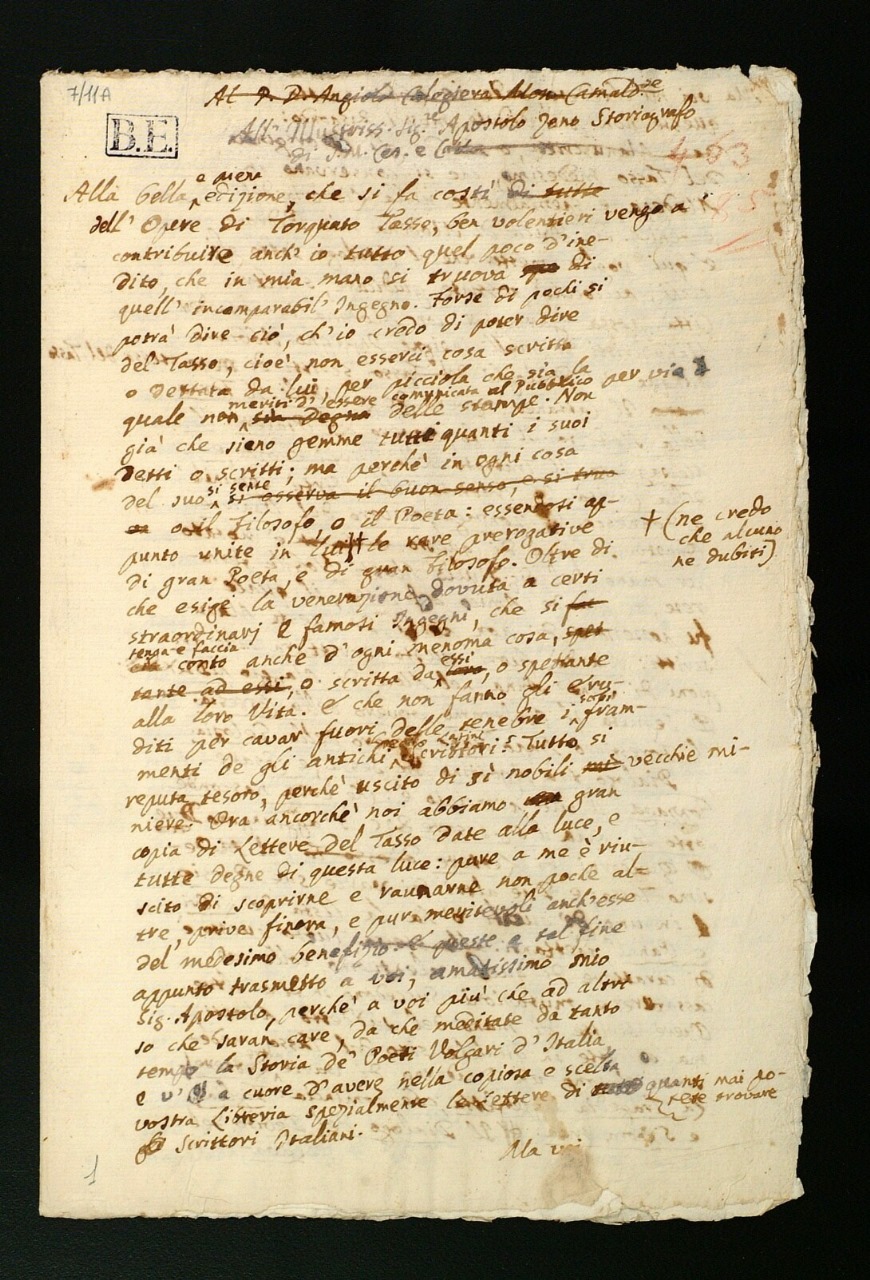 7/11A
B.E.
Al P. D. Angiolo Calogierà Mon. Camald.se
All' Illustriss. Sig.re Apostolo Zeno Storiografo
di S. M. Ces. e Catt.
483
Alla bella e piena edizione, che si fa costì di tutte
dell' Opere di Torquato Tasso, ben volentieri vengo a
contribuire anch' io tutto quel poco d'ine-
dito, che in mia mano si truova di
quell' incomparabil' Ingegno. Forse di pochi si
potrà dire ciò, ch'io credo di poter dire
del Tasso, cioè non esserci cosa scritta
o dettata da lui, per picciola che sia, la
meriti d' essere comunicata al Pubblico per via
quale non sia degna delle stampe. Non
già che sieno gemme tutti quanti i suoi
detti o scritti; ma perchè in ogni cosa
si sente
del suo si osserva il buon senso, e si truo
o il Filosofo, o il Poeta: essendosi ap-
punto unite in lui le rare prerogative
† (ne credo
che alcuno
ne dubiti)
di gran Poeta, e di gran Filosofo. Oltre di
che esige la venerazione dovuta a certi
straordinarj e famosi Ingegni, che si fac
tenga e faccia
conto anche d'ogni menoma cosa, spet
essi
tante ad essi, o scritta da loro, o spettante
alla loro Vita. E che non fanno gli Eru-
diti per cavar fuori delle tenebre i fram-
menti de gli antichi Scrittori? Tutto si
reputa tesoro, perchè uscito di sì nobili vecchie mi-
niere. Ora ancorchè noi abbiamo gran
copia di Lettere del Tasso date alla luce, e
tutte degne di questa luce: pure a me è riu-
scito di scoprirne e raunarne non poche al-
tre, prive finora, e pur meritevoli anch'esse
del medesimo benefizio. E queste a tal fine
appunto trasmetto a voi, amatissimo mio
Sig. Apostolo, perchè a voi più che ad altri
so che saran care, da che meditate da tanto
tempo la Storia de' Poeti Volgari d' Italia
e v' a cuore d'avere nella copiosa e scelta
vostra Libreria spezialmente le Lettere di quanti mai po-
tete trovare
Scrittori Italiani.
Ma voi
1